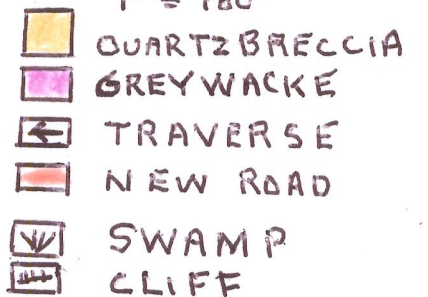 QUARTZ BRECCIA
GREYWACKE
TRAVERSE
NEW ROAD
SWAMP
CLIFF